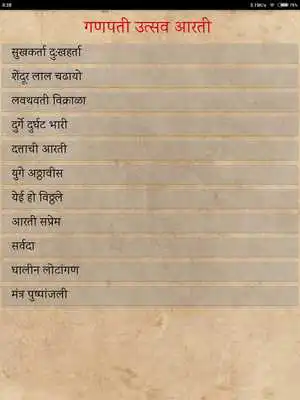 गणपती उत्सव आरती
सुखकर्ता दु:खहर्ता
शेंदूर लाल चढायो
लवथवती विक्राळा
दुर्गे दुर्घट भारी
दत्ताची आरती
युगे अठ्ठावीस
येई हो विठ्ठले
आरती सप्रेम
सर्वदा
घालीन लोटांगण
मंत्र पुष्पांजली